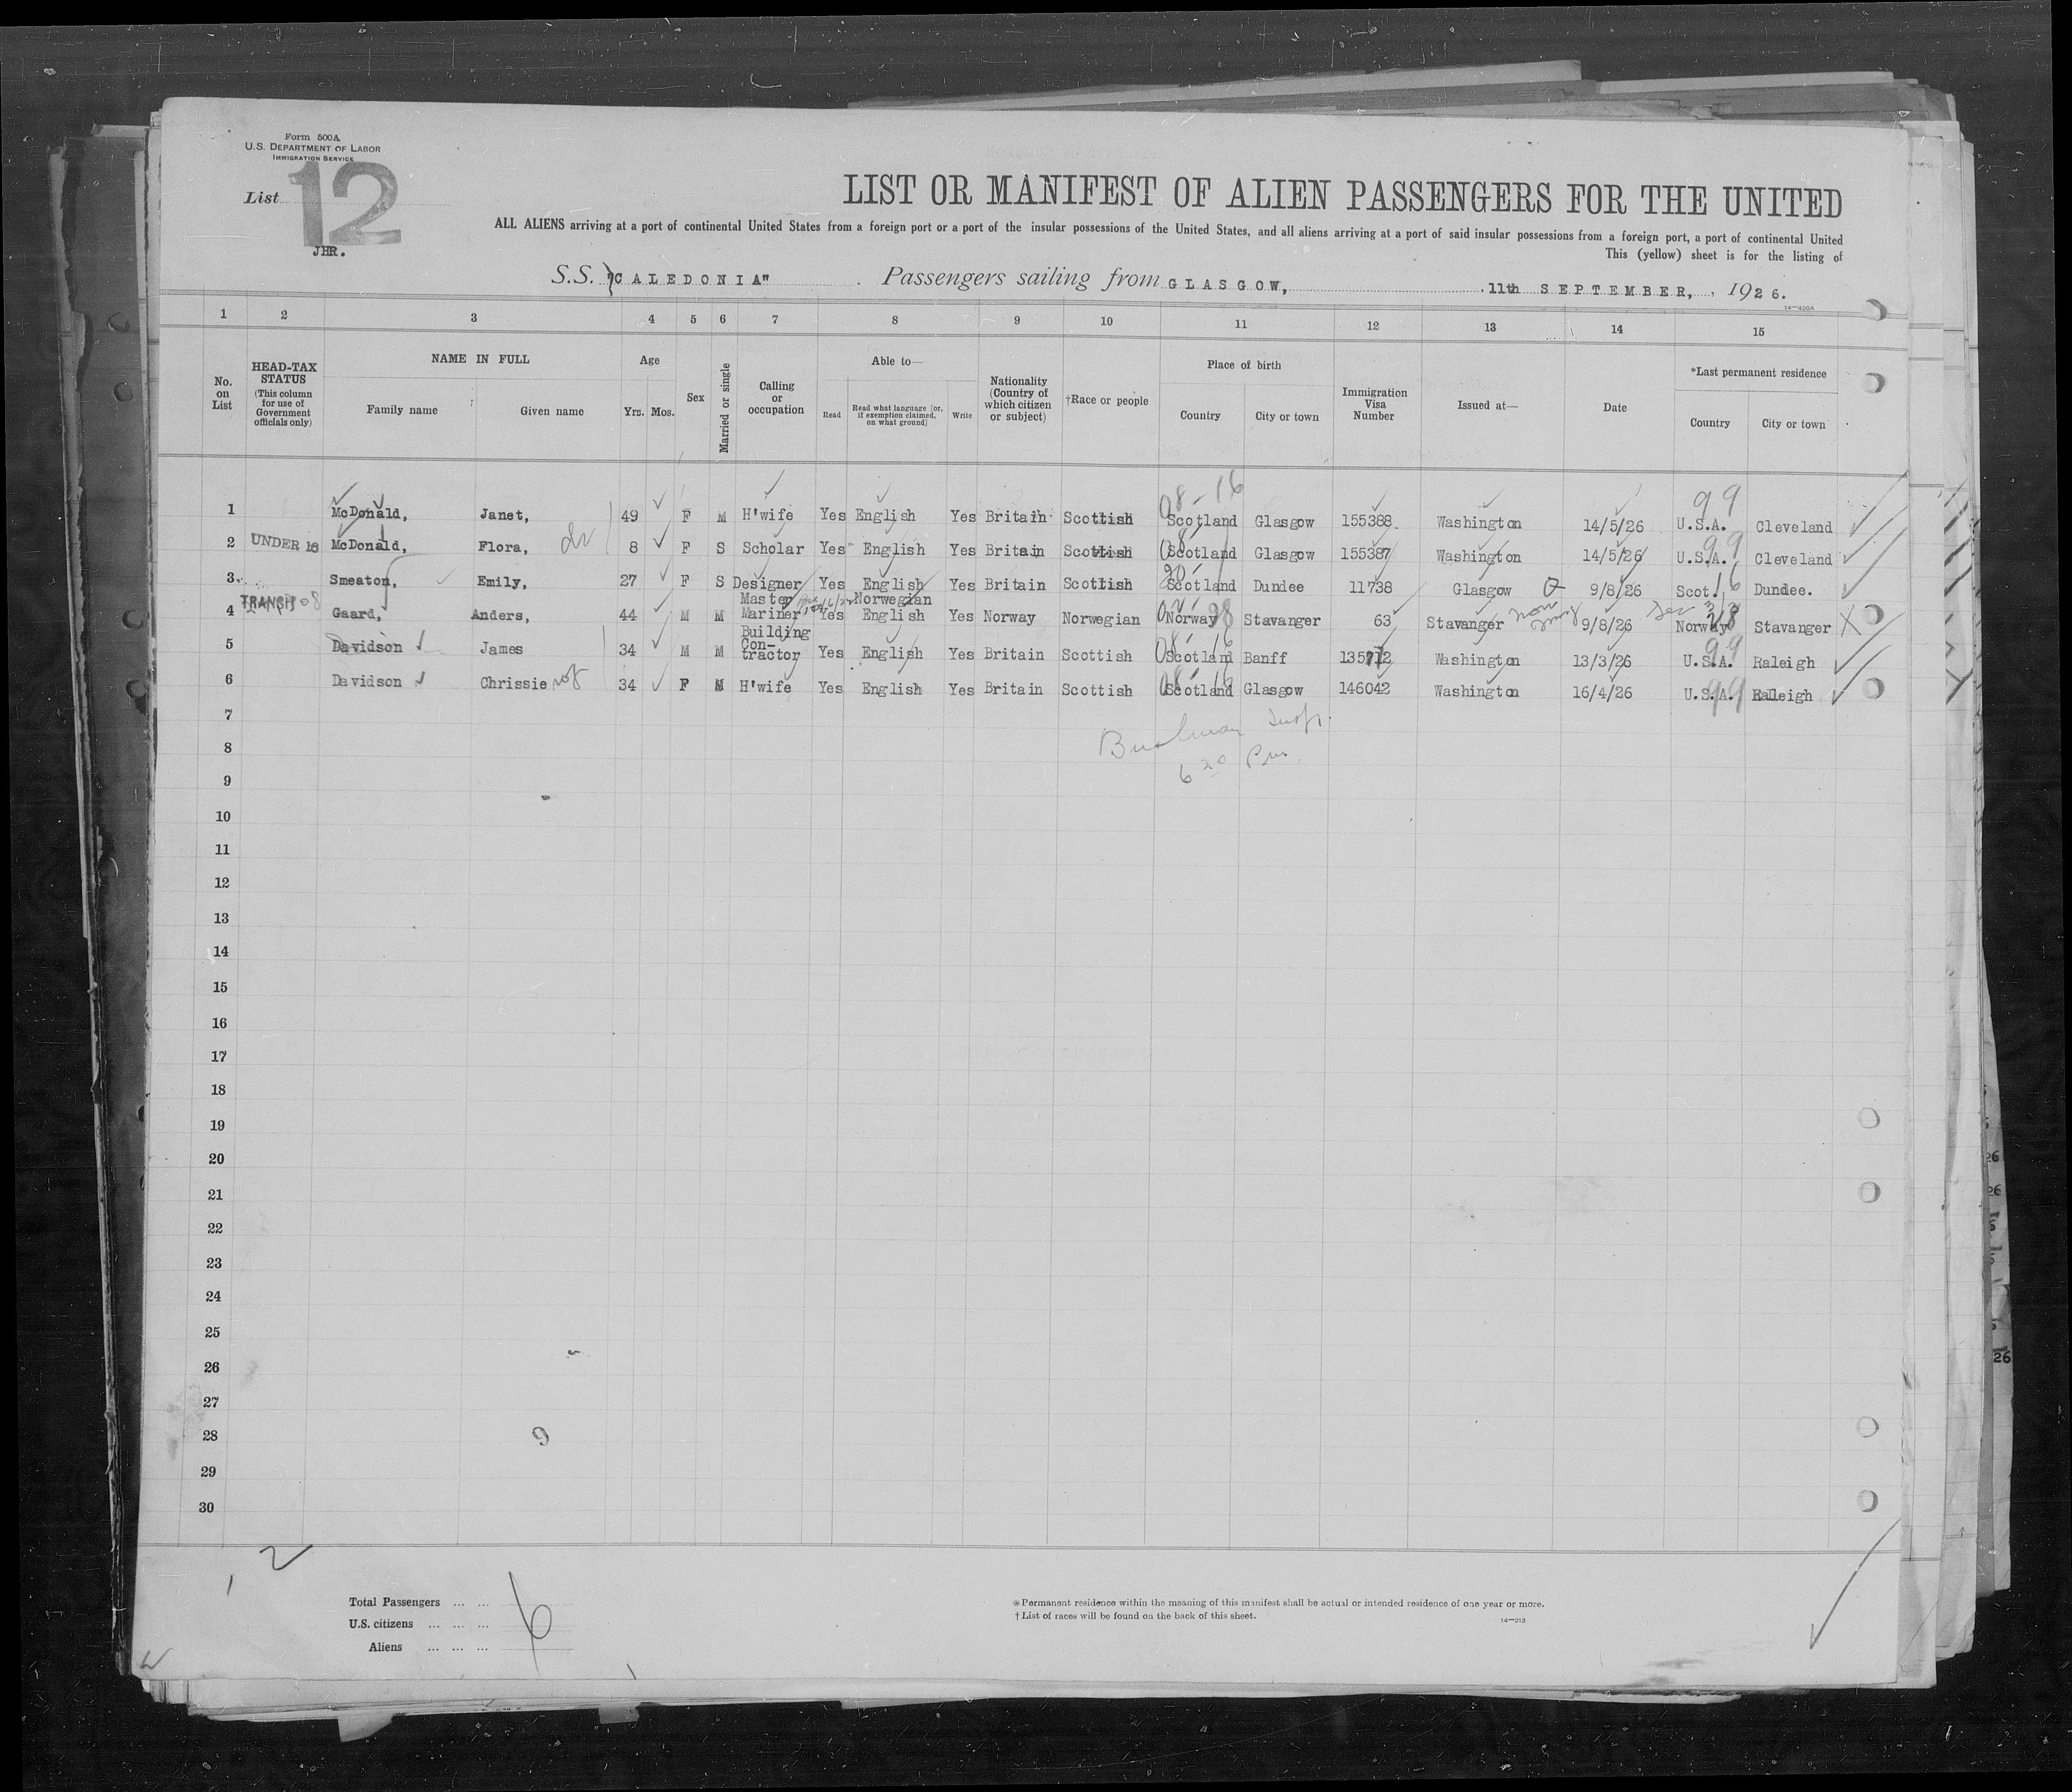 Form 500A
U.S. DEPARTMENT OF LABOR
IMMIGRATION SERVICE
List 12
JHR.
LIST OR MANIFEST OF ALIEN PASSENGERS FOR THE UNITED
ALL ALIENS arriving at a port of continental United States from a foreign port or a port of the insular possessions of the United States, and all aliens arriving at a port of said insular possessions from a foreign port, a port of continental United
This (yellow) sheet is for the listing of
S.S. "CALEDONIA" Passengers sailing from GLASGOW, 11th SEPTEMBER, 1926.
14—420A
1 2 3 4 5 6 7 8 9 10 11 12 13 14 15
No. on List
HEAD-TAX STATUS (This column for use of Government officials only)
NAME IN FULL
Family name Given name
Age
Yrs. Mos.
Sex
Married or single
Calling or occupation
Able to—
Read
Read what language [or, if exemption claimed, on what ground]
Write
Nationality (Country of which citizen or subject)
†Race or people
Place of birth
Country City or town
Immigration Visa Number
Issued at—
Date
*Last permanent residence
Country City or town
08-16 99
1 McDonald, Janet, 49 F M H'wife Yes English Yes Britain Scottish Scotland Glasgow 155388 Washington 14/5/26 U.S.A. Cleveland
2 UNDER 16 McDonald, Flora, 8 F S Scholar Yes English Yes Britain Scottish Scotland Glasgow 155387 Washington 14/5/26 U.S.A. Cleveland
3 Smeaton, Emily, 27 F S Designer Yes English Yes Britain Scottish Scotland Dundee 11738 Glasgow 9/8/26 Scot. Dundee.
4 TRANSIT Gaard, Anders, 44 M M Master Mariner Yes Norwegian English Yes Norway Norwegian Norway Stavanger 63 Stavanger 9/8/26 Norway Stavanger
5 Davidson James 34 M M Building Contractor Yes English Yes Britain Scottish Scotland Banff Washington 13/3/26 U.S.A. Raleigh
6 Davidson Chrissie 34 F M H'wife Yes English Yes Britain Scottish Scotland Glasgow 146042 Washington 16/4/26 U.S.A. Raleigh
7
8
6 20 Pm
9
10
11
12
13
14
15
16
17
18
19
20
21
22
23
24
25
26
27
28
29
30
2
Total Passengers ... ...
U.S. citizens ... ... ... 6
Aliens ... ... ...
* Permanent residence within the meaning of this manifest shall be actual or intended residence of one year or more.
† List of races will be found on the back of this sheet.
14—213
26
26
26